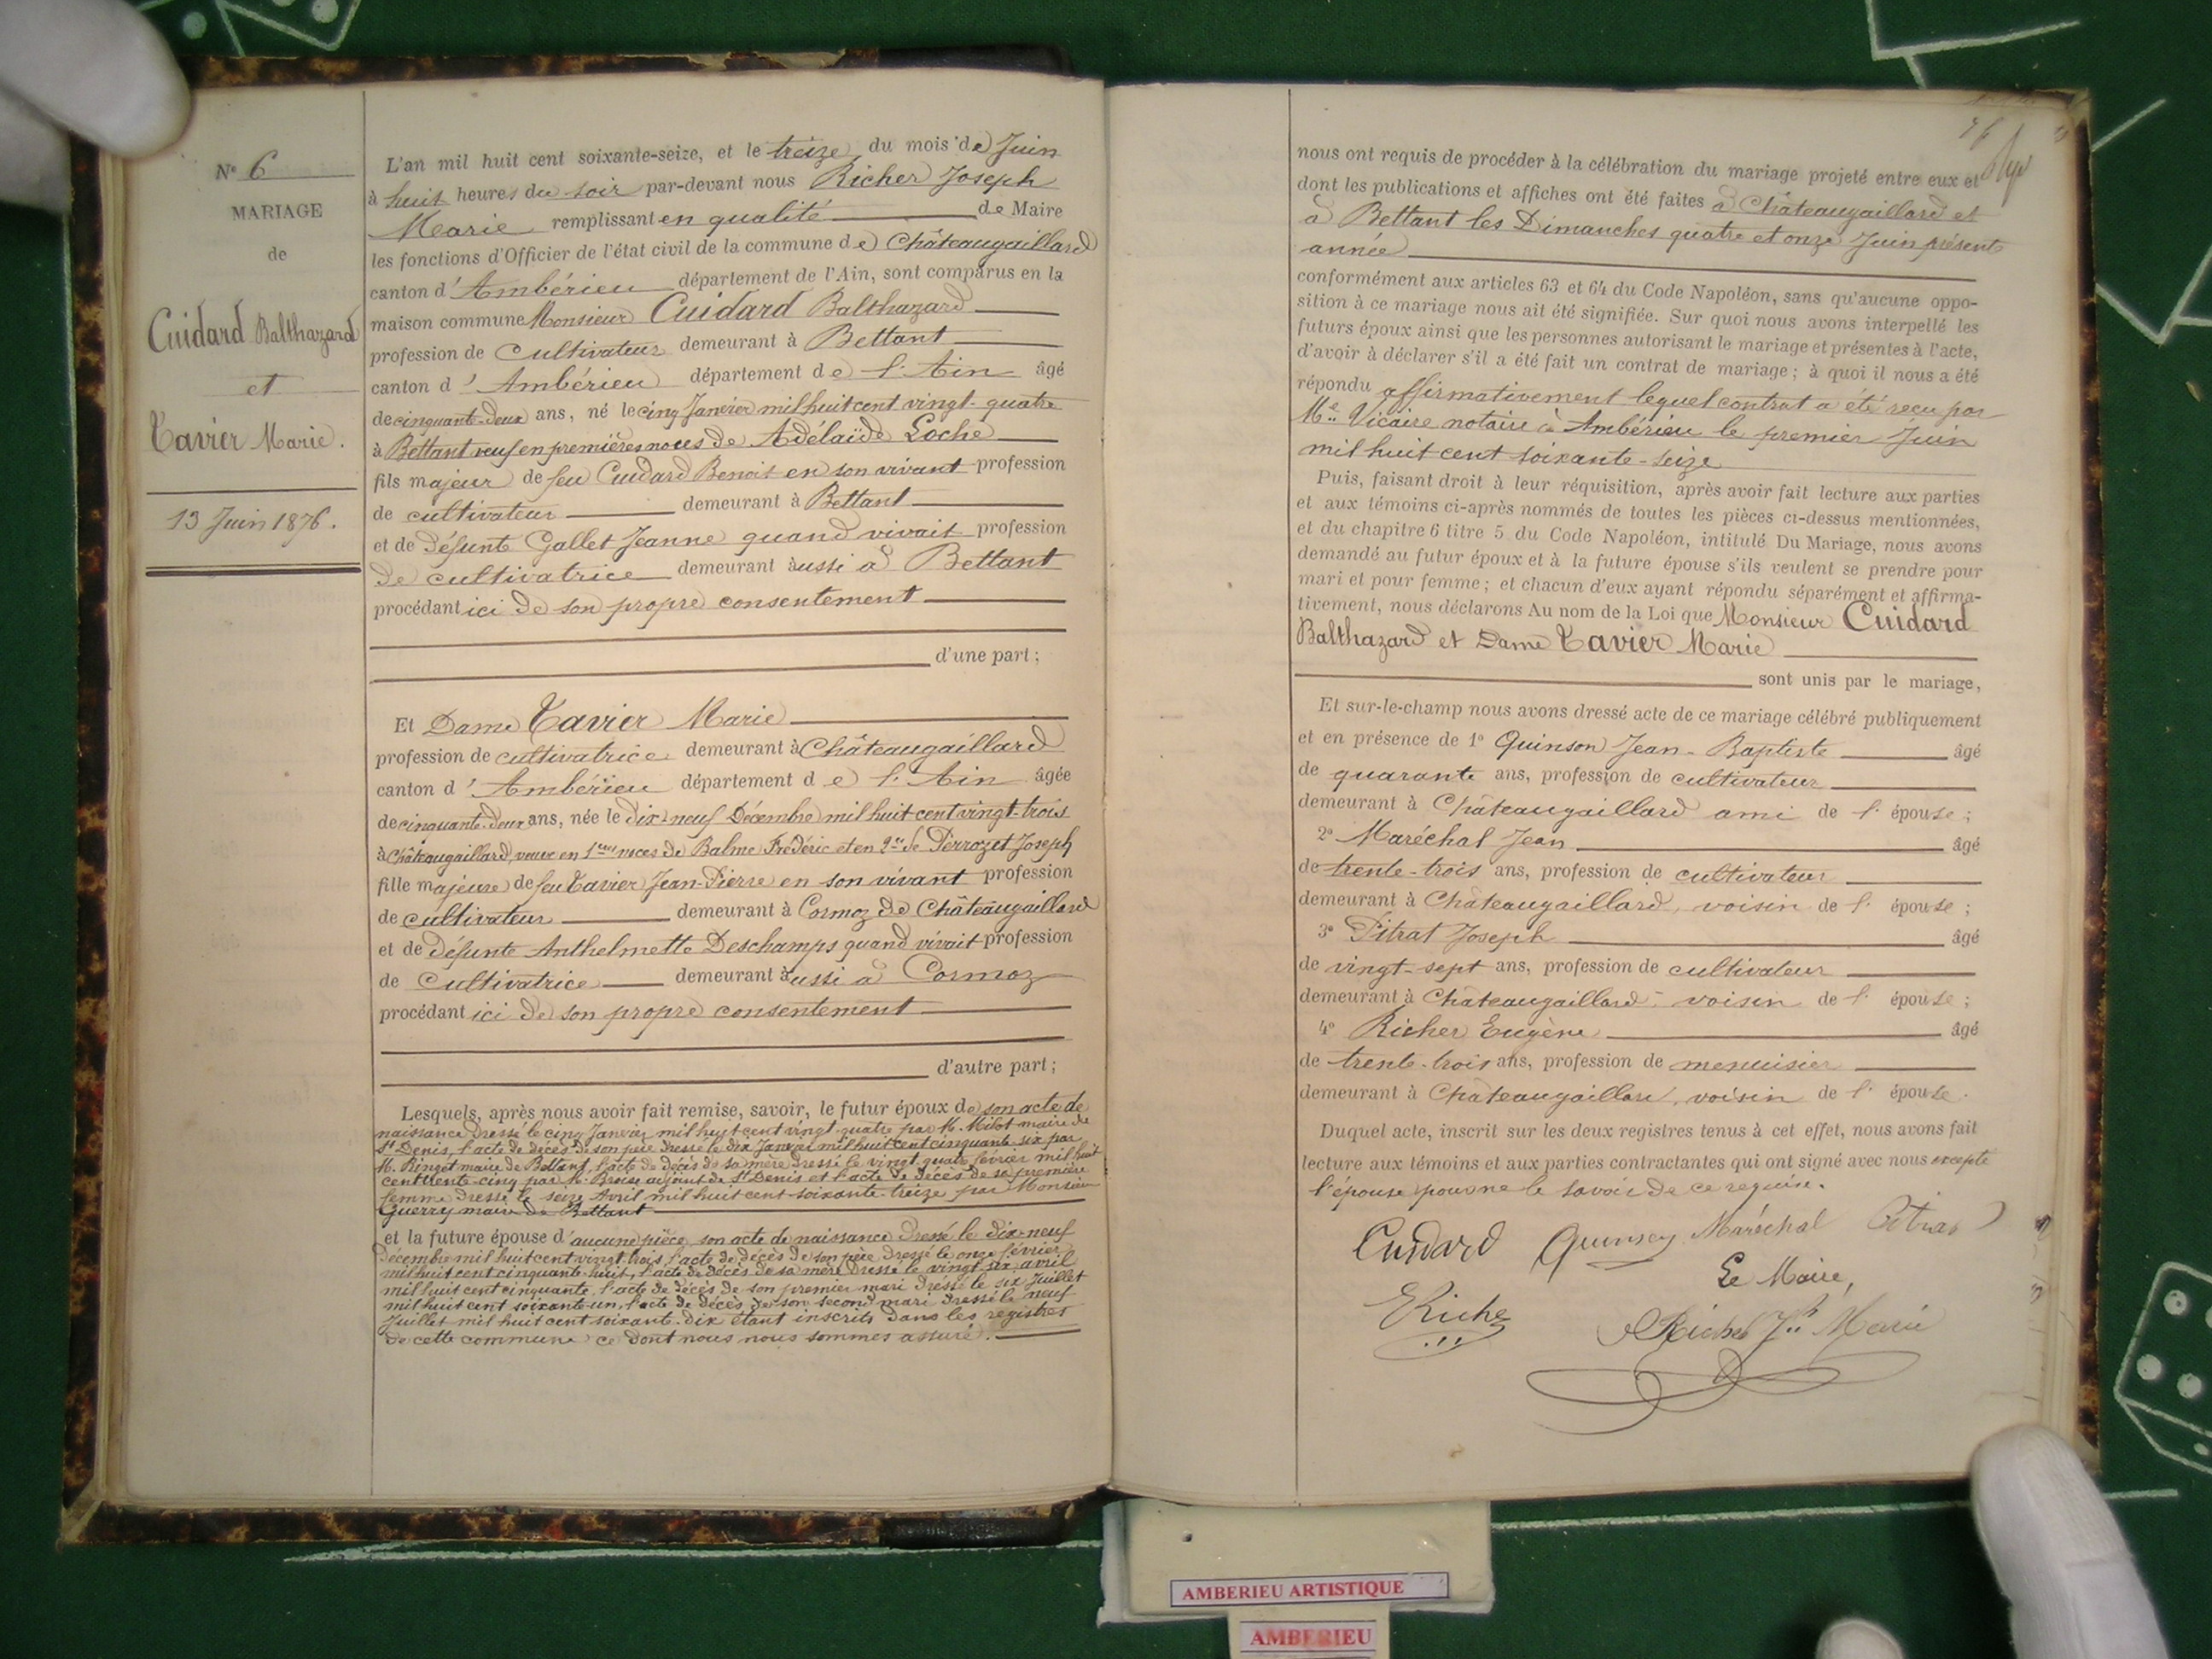 N° 6
MARIAGE
de
Cuidard Balthazard
et
Tavier Marie.
13 Juin 1876.
L'an mil huit cent soixante-seize, et le treize du mois de Juin
à huit heures du soir par-devant nous Richer Joseph
Marie remplissant en qualité de Maire
les fonctions d'Officier de l'état civil de la commune de Châteaugaillard
canton d'Ambérieu département de l'Ain, sont comparus en la
maison commune Monsieur Cuidard Balthazard
profession de cultivateur demeurant à Bettant
canton d'Ambérieu département de l'Ain âgé
de cinquante-deux ans, né le cinq Janvier mil huit cent vingt-quatre
à Bettant veuf en premières noces de Adélaïde Loche
fils majeur de feu Cuidard Benoit en son vivant profession
de cultivateur demeurant à Bettant
et de défunte Gallet Jeanne quand vivait profession
de cultivatrice demeurant aussi à Bettant
procédant ici de son propre consentement
d'une part ;
Et Dame Tavier Marie
profession de cultivatrice demeurant à Châteaugaillard
canton d'Ambérieu département de l'Ain âgée
de cinquante-deux ans, née le dix-neuf Décembre mil huit cent vingt-trois
à Châteaugaillard, veuve en 1ères noces de Balme Frédéric et en 2es de Perrozet Joseph
fille majeure de feu Tavier Jean-Pierre en son vivant profession
de cultivateur demeurant à Cormoz de Châteaugaillard
et de défunte Anthelmette Deschamps quand vivait profession
de cultivatrice demeurant aussi à Cormoz
procédant ici de son propre consentement
d'autre part ;
Lesquels, après nous avoir fait remise, savoir, le futur époux de son acte de
naissance dressé le cinq Janvier mil huit cent vingt-quatre par M. Milot maire de
St Denis, l'acte de décès de son père dressé le dix Janvier mil huit cent cinquante-six par
M. Ringet maire de Bettant, l'acte de décès de sa mère dressé le vingt-quatre février mil huit
cent trente-cinq par M. adjoint de St Denis et l'acte de décès de sa première
femme dressé le seize Avril mil huit cent soixante-treize par Monsieur
Guerry maire de Bettant
et la future épouse d'aucune pièce, son acte de naissance dressé le dix-neuf
Décembre mil huit cent vingt-trois, l'acte de décès de son père dressé le onze février
mil huit cent cinquante-huit, l'acte de décès de sa mère dressé le vingt-six avril
mil huit cent cinquante, l'acte de décès de son premier mari dressé le six Juillet
mil huit cent soixante-un, l'acte de décès de son second mari dressé le neuf
Juillet mil huit cent soixante-dix étant inscrits dans les registres
de cette commune ce dont nous nous sommes assuré.
76
nous ont requis de procéder à la célébration du mariage projeté entre eux et
dont les publications et affiches ont été faites à Châteaugaillard et
à Bettant les Dimanches quatre et onze Juin présente
année
conformément aux articles 63 et 64 du Code Napoléon, sans qu'aucune oppo-
sition à ce mariage nous ait été signifiée. Sur quoi nous avons interpellé les
futurs époux ainsi que les personnes autorisant le mariage et présentes à l'acte,
d'avoir à déclarer s'il a été fait un contrat de mariage ; à quoi il nous a été
répondu affirmativement lequel contrat a été reçu par
Me Vicaire notaire à Ambérieu le premier Juin
mil huit cent soixante-seize
Puis, faisant droit à leur réquisition, après avoir fait lecture aux parties
et aux témoins ci-après nommés de toutes les pièces ci-dessus mentionnées,
et du chapitre 6 titre 5 du Code Napoléon, intitulé Du Mariage, nous avons
demandé au futur époux et à la future épouse s'ils veulent se prendre pour
mari et pour femme ; et chacun d'eux ayant répondu séparément et affirma-
tivement, nous déclarons Au nom de la Loi que Monsieur Cuidard
Balthazard et Dame Tavier Marie
sont unis par le mariage,
Et sur-le-champ nous avons dressé acte de ce mariage célébré publiquement
et en présence de 1° Quinson Jean-Baptiste âgé
de quarante ans, profession de cultivateur
demeurant à Châteaugaillard ami de l'épouse ;
2° Maréchal Jean âgé
de trente-trois ans, profession de cultivateur
demeurant à Châteaugaillard, voisin de l'épouse ;
3° Pitrat Joseph âgé
de vingt-sept ans, profession de cultivateur
demeurant à Châteaugaillard voisin de l'épouse ;
4° Richer Eugène âgé
de trente-trois ans, profession de menuisier
demeurant à Châteaugaillard, voisin de l'épouse.
Duquel acte, inscrit sur les deux registres tenus à cet effet, nous avons fait
lecture aux témoins et aux parties contractantes qui ont signé avec nous excepté
l'épouse pour ne le savoir de ce requise.
Cuidard Quinson Maréchal Pitrat
Le Maire,
ERicher
Richer Jh Marie
AMBERIEU ARTISTIQUE
AMBERIEU